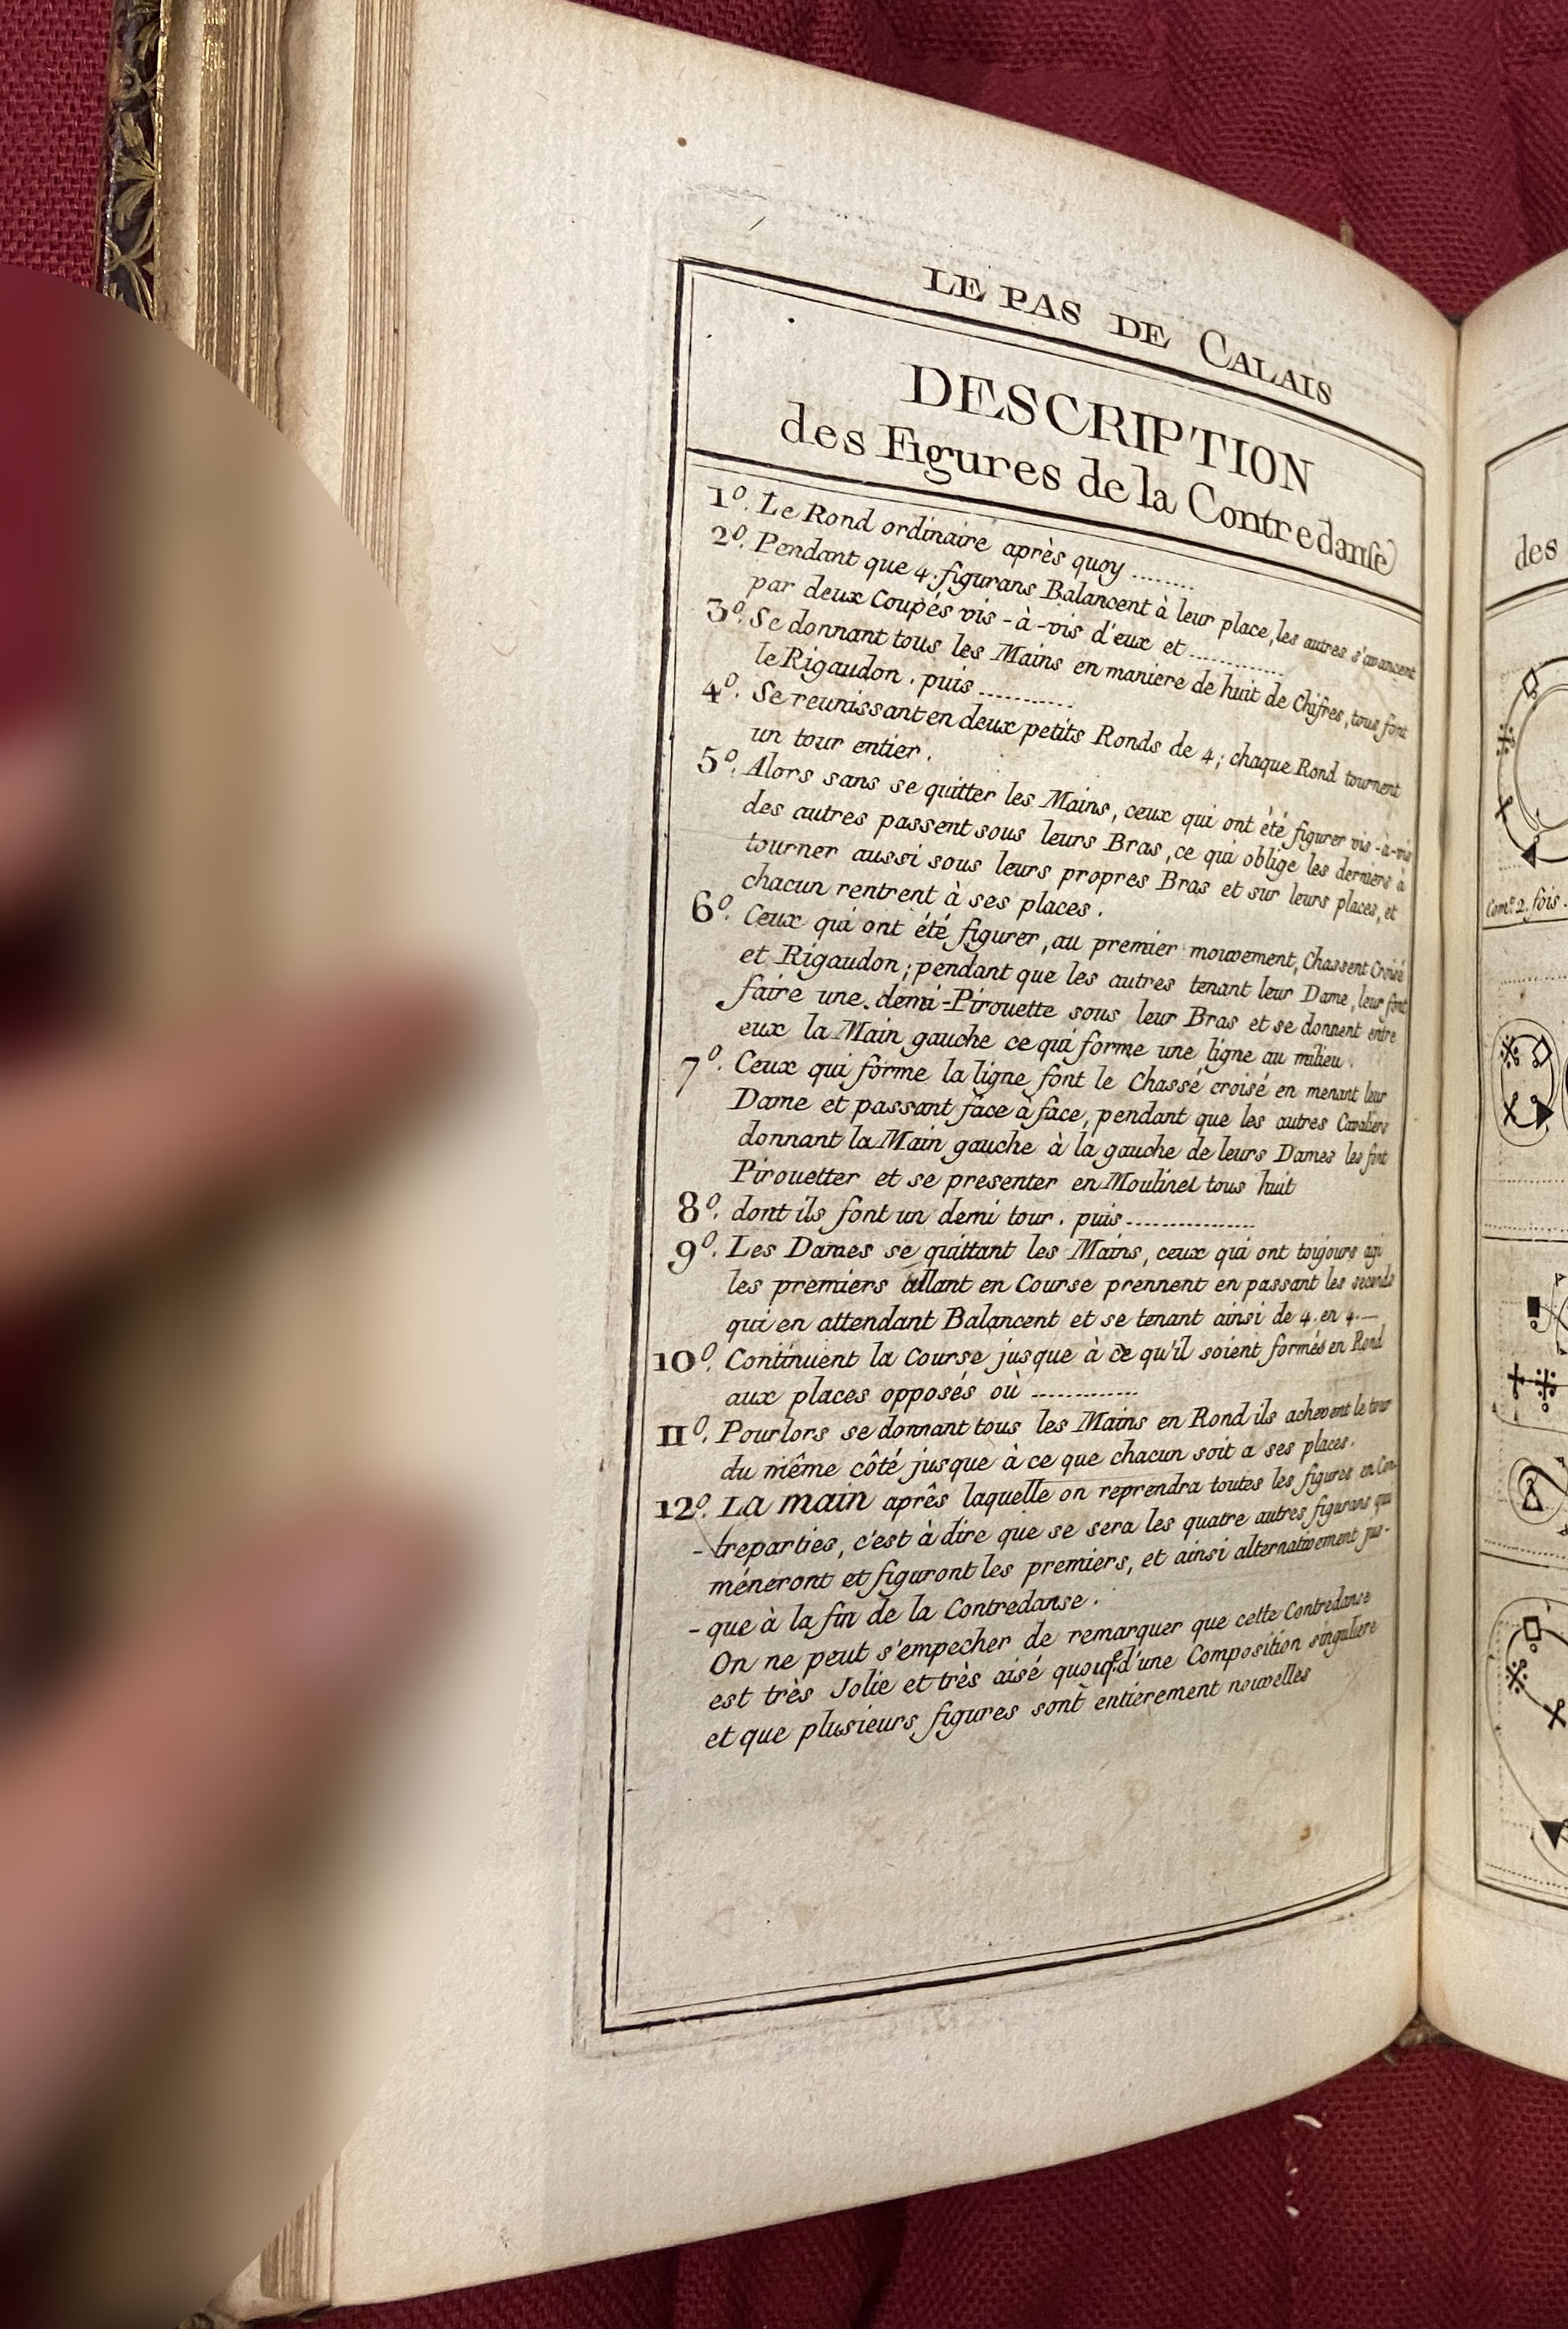 LE PAS DE CALAIS
DESCRIPTION
des Figures de la Contredanse
1º. Le Rond ordinaire après quoy ........
2º. Pendant que 4. figurans Balancent à leur place, les autres s'avancent
par deux Coupés vis-à-vis d'eux et ............
3º. Se donnant tous les Mains en maniere de huit de Chifres, tous font
le Rigaudon. puis ...........
4º. Se reunissant en deux petits Ronds de 4; chaque Rond tournent
un tour entier.
5º. Alors sans se quitter les Mains, ceux qui ont été figurer vis-à-vis
des autres passent sous leurs Bras, ce qui oblige les derniers à
tourner aussi sous leurs propres Bras et sur leurs places, et
chacun rentrent à ses places.
6º. Ceux qui ont été figurer, au premier mouvement, Chassent Croisé
et Rigaudon; pendant que les autres tenant leur Dame, leur font
faire une demi-Pirouette sous leur Bras et se donnent entre
eux la Main gauche ce qui forme une ligne au milieu.
7º. Ceux qui forme la ligne font le Chassé croisé en menant leur
Dame et passant face à face, pendant que les autres Cavaliers
donnant la Main gauche à la gauche de leurs Dames les font
Pirouetter et se presenter en Moulinet tous huit
8º. dont ils font un demi tour. puis ................
9º. Les Dames se quittant les Mains, ceux qui ont toujours agi
les premiers allant en Course prennent en passant les seconds
qui en attendant Balancent et se tenant ainsi de 4. en 4.—
10º. Continuent la Course jusque à ce qu'il soient formés en Rond
aux places opposés où .............
11º. Pourlors se donnant tous les Mains en Rond ils achevent le tour
du même côté jusque à ce que chacun soit a ses places.
12º. La main après laquelle on reprendra toutes les figures en Con-
-treparties, c'est à dire que se sera les quatre autres figurans qui
méneront et figuront les premiers, et ainsi alternativement jus-
-que à la fin de la Contredanse.
On ne peut s'empecher de remarquer que cette Contredanse
est très Jolie et très aisé d'une Composition singuliere
et que plusieurs figures sont entierement nouvelles
des
2. fois.